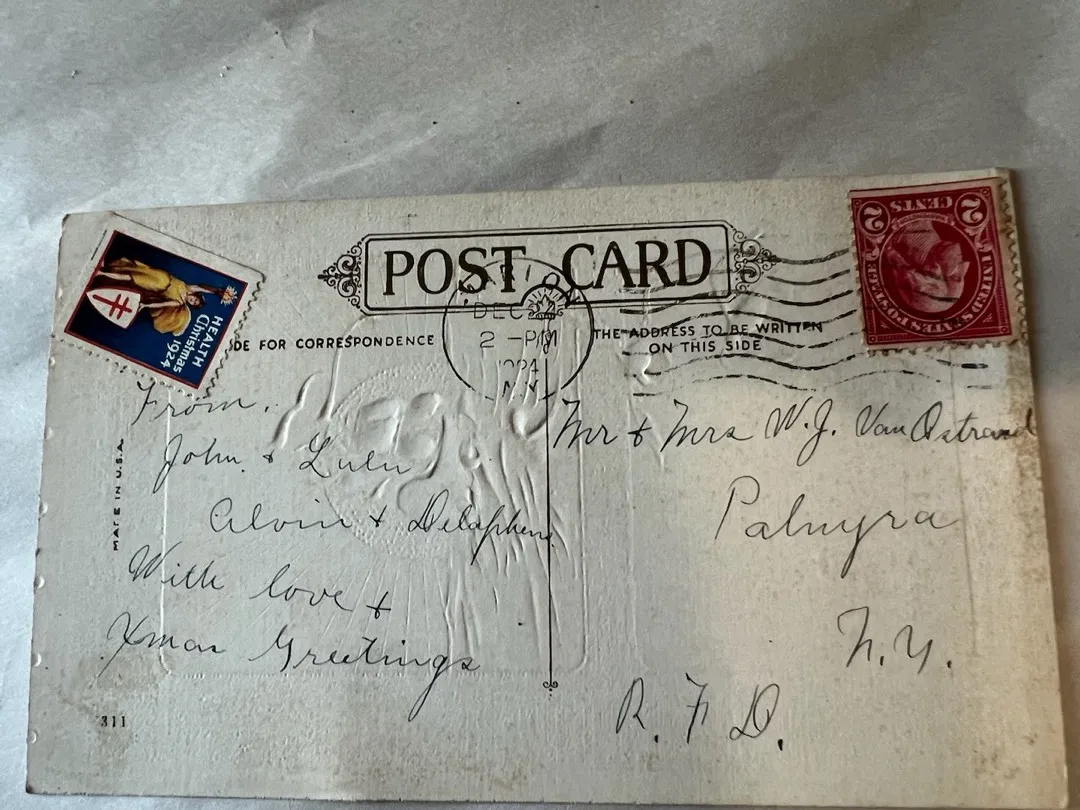 POST CARD
DE FOR CORRESPONDENCE
THE ADDRESS TO BE WRITTEN
ON THIS SIDE
HEALTH
Christmas
1924
DEC
2 -PM
1924
N.Y.
2 CENTS 2
UNITED STATES POSTAGE
From.
John. & Lulu
Alvin &
With love &
Xmas Greetings
Mr & Mrs W.J. VanOstrand
Palmyra
N.Y.
R. F. D.
MADE IN U.S.A.
311